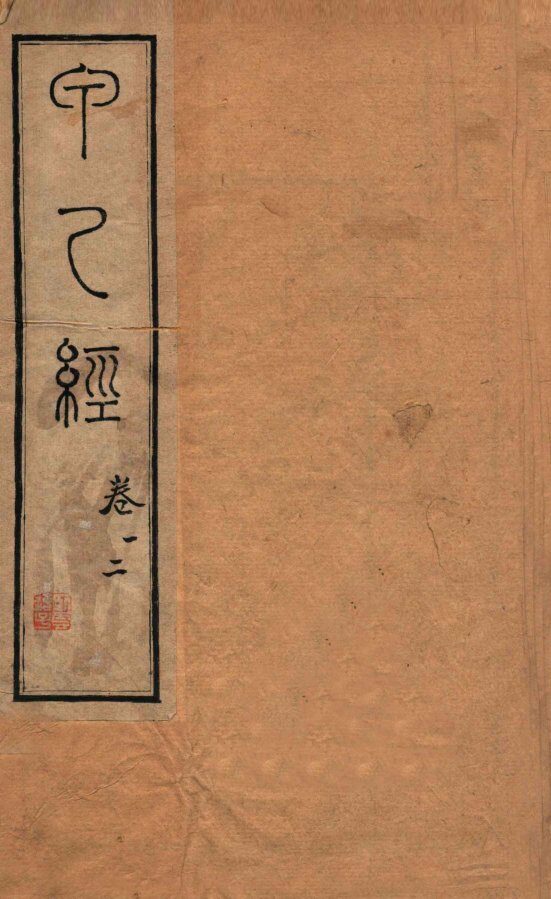 甲乙經
卷一
二